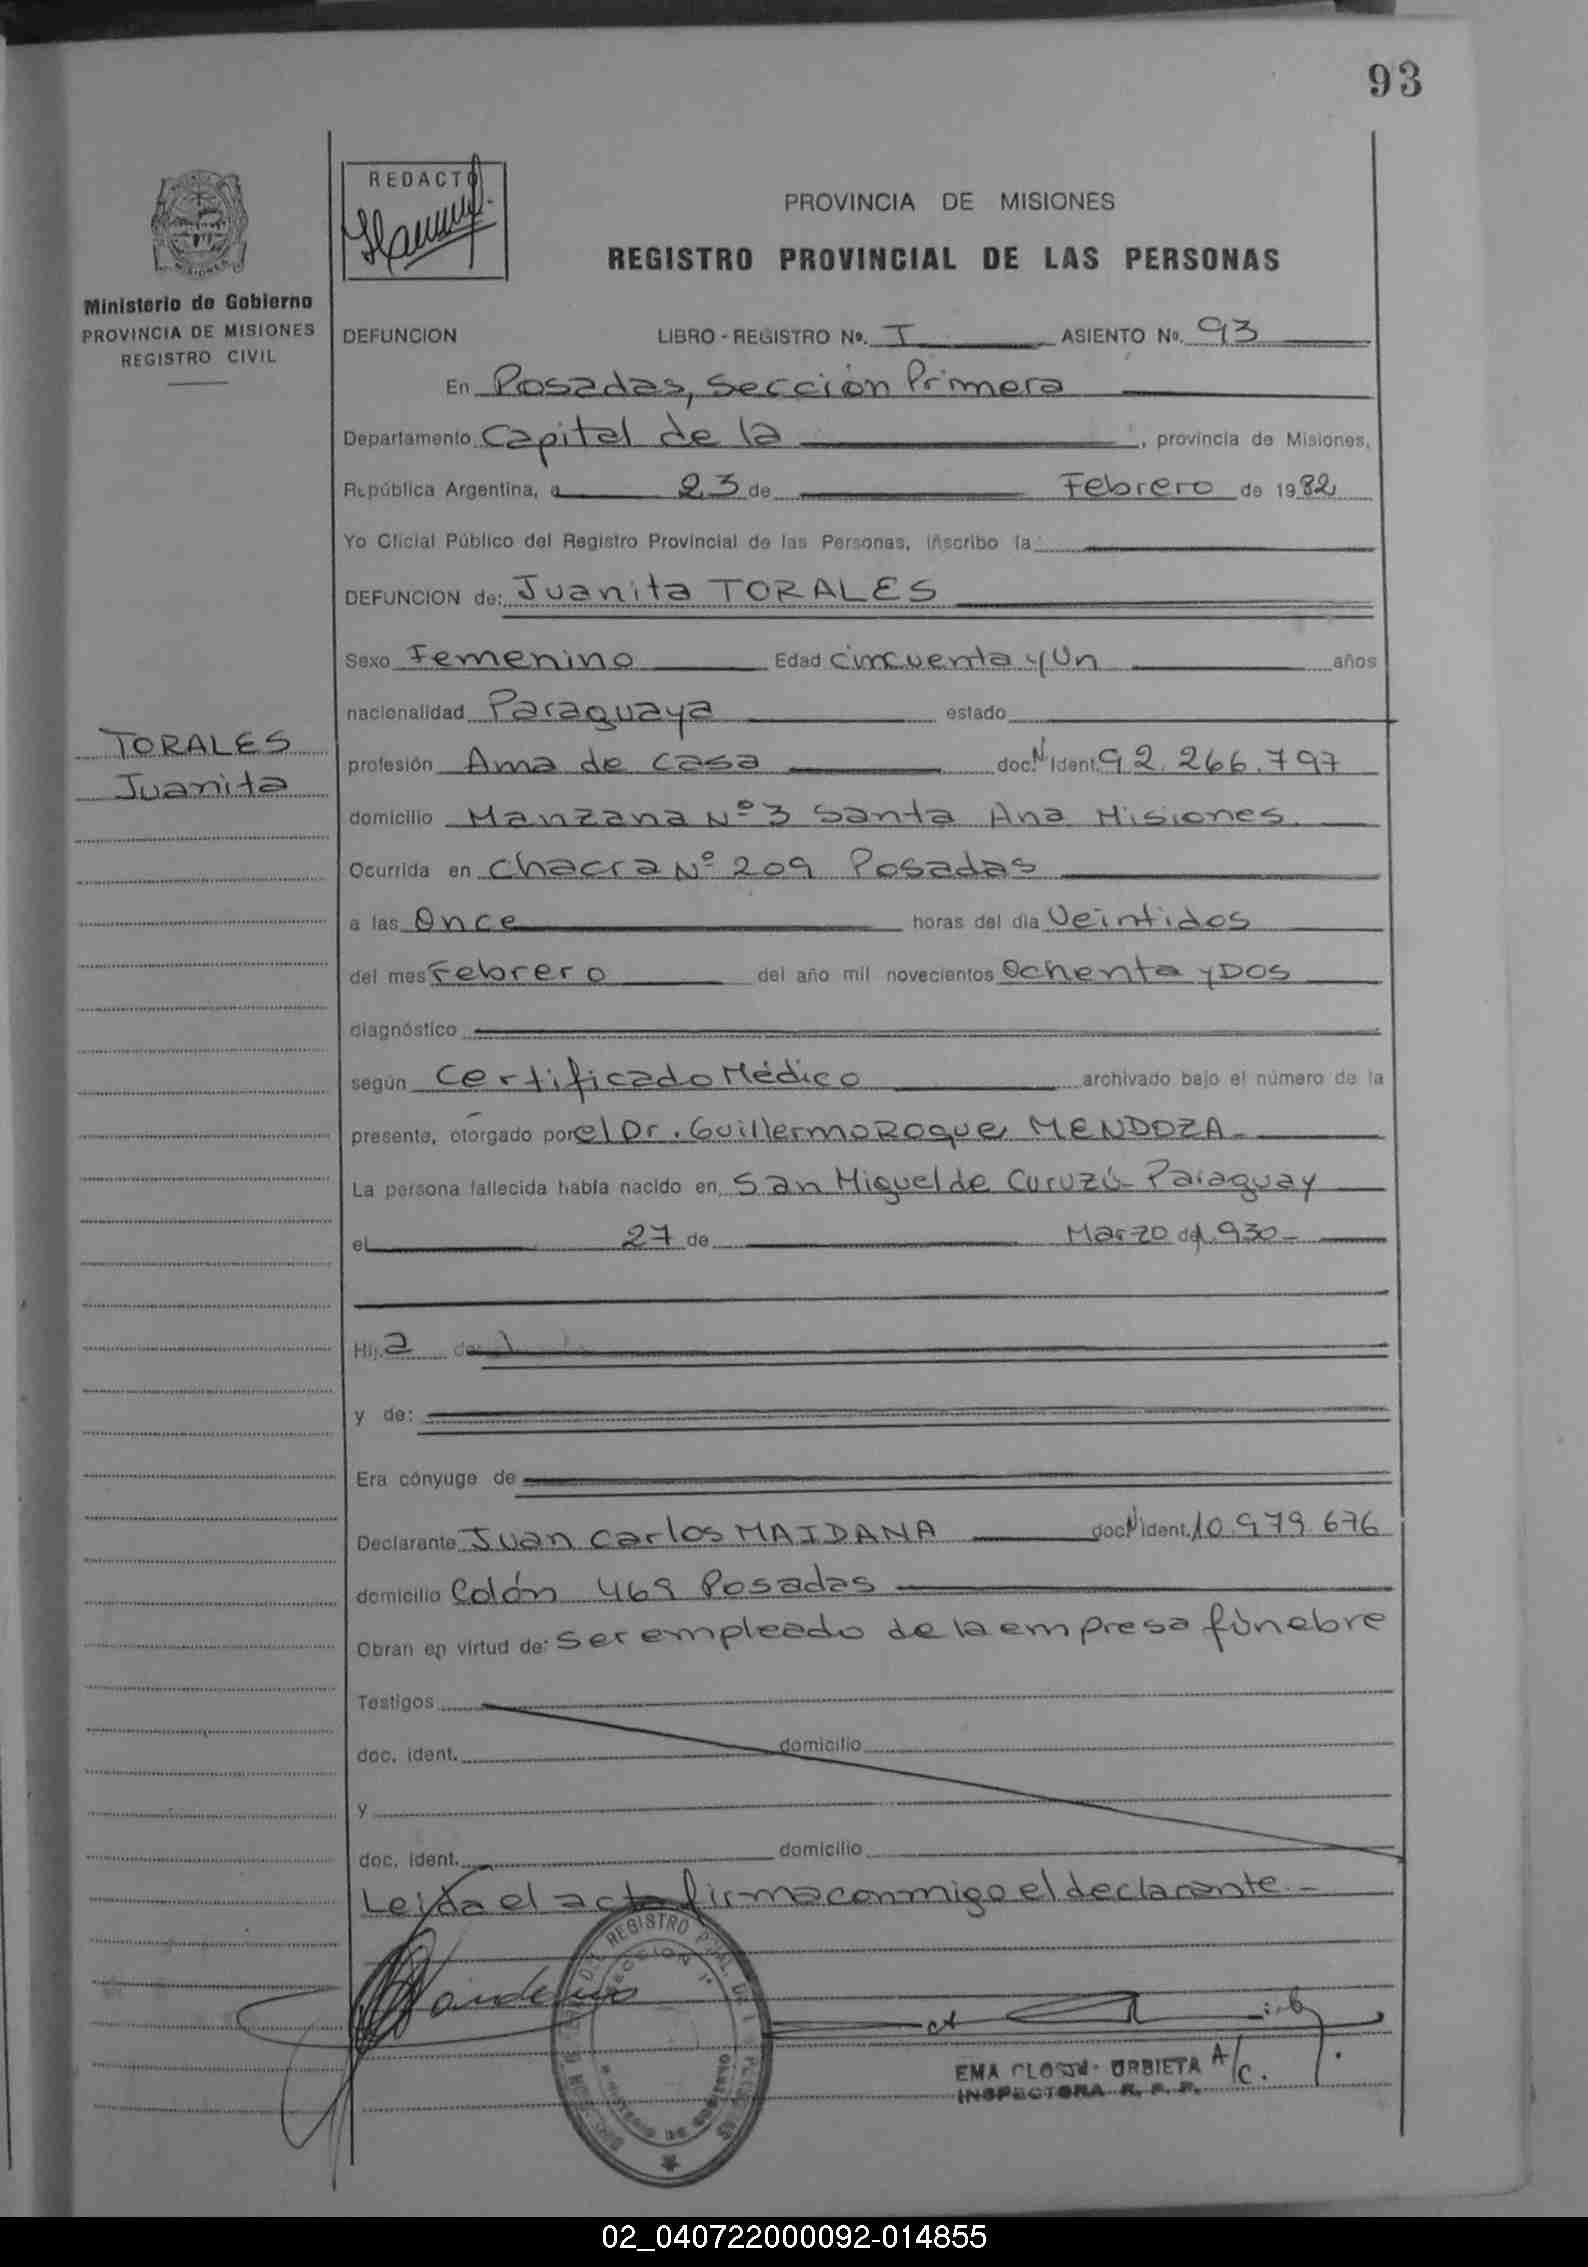 93
REDACTO
PROVINCIA DE MISIONES
REGISTRO PROVINCIAL DE LAS PERSONAS
Ministerio de Gobierno
PROVINCIA DE MISIONES
REGISTRO CIVIL
DEFUNCION LIBRO - REGISTRO Nº. I ASIENTO No. 93
En Posadas, Sección Primera
Departamento Capital de la , provincia de Misiones,
República Argentina, a 23 de Febrero de 1982
Yo Oficial Público del Registro Provincial de las Personas, inscribo la:
DEFUNCION de: Juanita TORALES
Sexo Femenino Edad cincuenta y Un años
nacionalidad Paraguaya estado
TORALES
Juanita
profesión Ama de casa doc. N Ident. 92.266.797
domicilio Manzana Nº 3 Santa Ana Misiones.
Ocurrida en Chacra Nº 209 Posadas
a las Once horas del día Veintidos
del mes Febrero del año mil novecientos Ochenta y DOS
diagnóstico
según Certificado Médico archivado bajo el número de la
presente, otorgado por el Dr. Guillermo Roque MENDOZA -
La persona fallecida había nacido en San Miguel de Curuzú - Paraguay
el 27 de Marzo de 1.930 -
Hij a de
y de:
Era cónyuge de
Declarante Juan Carlos MAIDANA doc N ident. 10.979.676
domicilio Colón 469 Posadas
Obran en virtud de: Ser empleado de la empresa fúnebre
Testigos
doc. ident. domicilio
y
doc. ident. domicilio
Leída el acta firma conmigo el declarante. -
REGISTRO
EMA ORBIETA A/C.
INSPECTORA R. P. P.
02_040722000092-014855